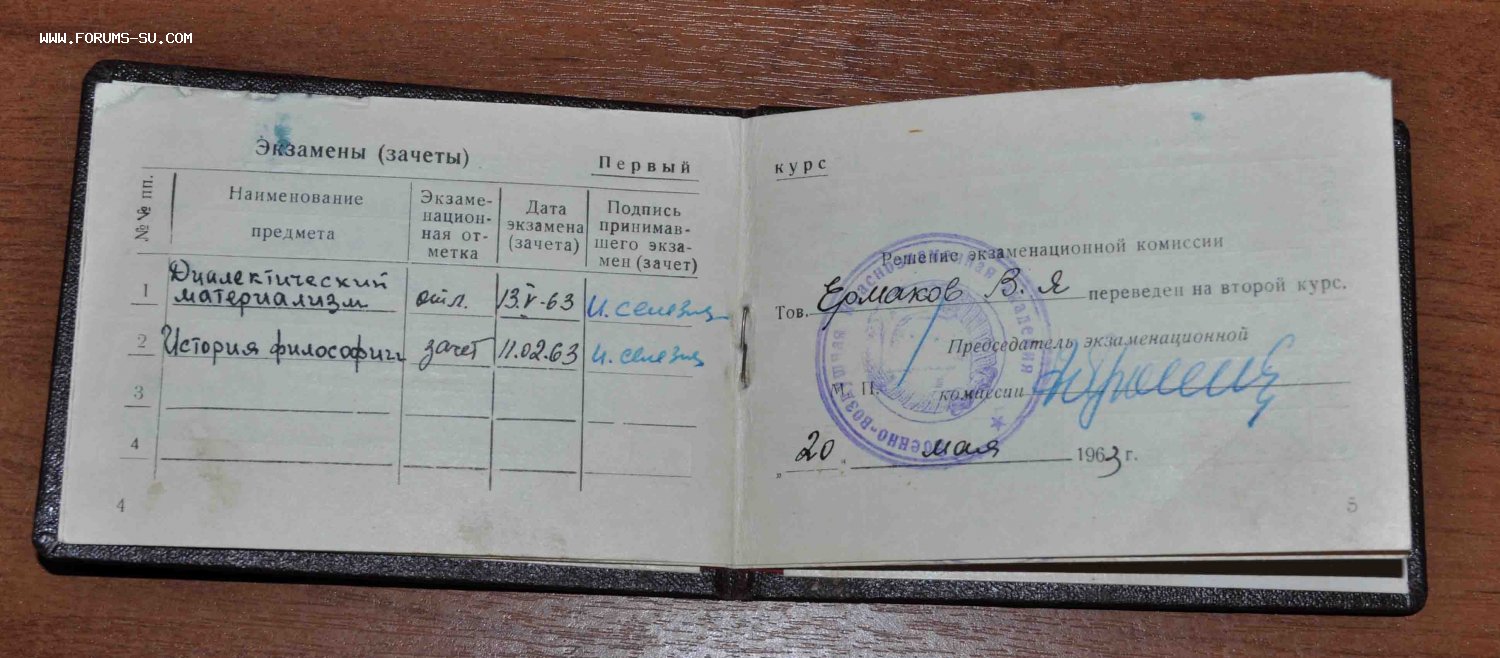 WWW.FORUMS-SU.COM
Экзамены (зачеты)
Первый
№№ пп.
Наименование
предмета
Экзаме-
национ-
ная от-
метка
Дата
экзамена
(зачета)
Подпись
принимав-
шего экза-
мен (зачет)
1
Диалектический
материализм
отл.
13.V-63
2
История философии
зачет
11.02.63
3
4
4
курс
Решение экзаменационной комиссии
Тов. Ермаков В. Я переведен на второй курс.
Председатель экзаменационной
М. П. комиссии
„20“ мая 1963 г.
5